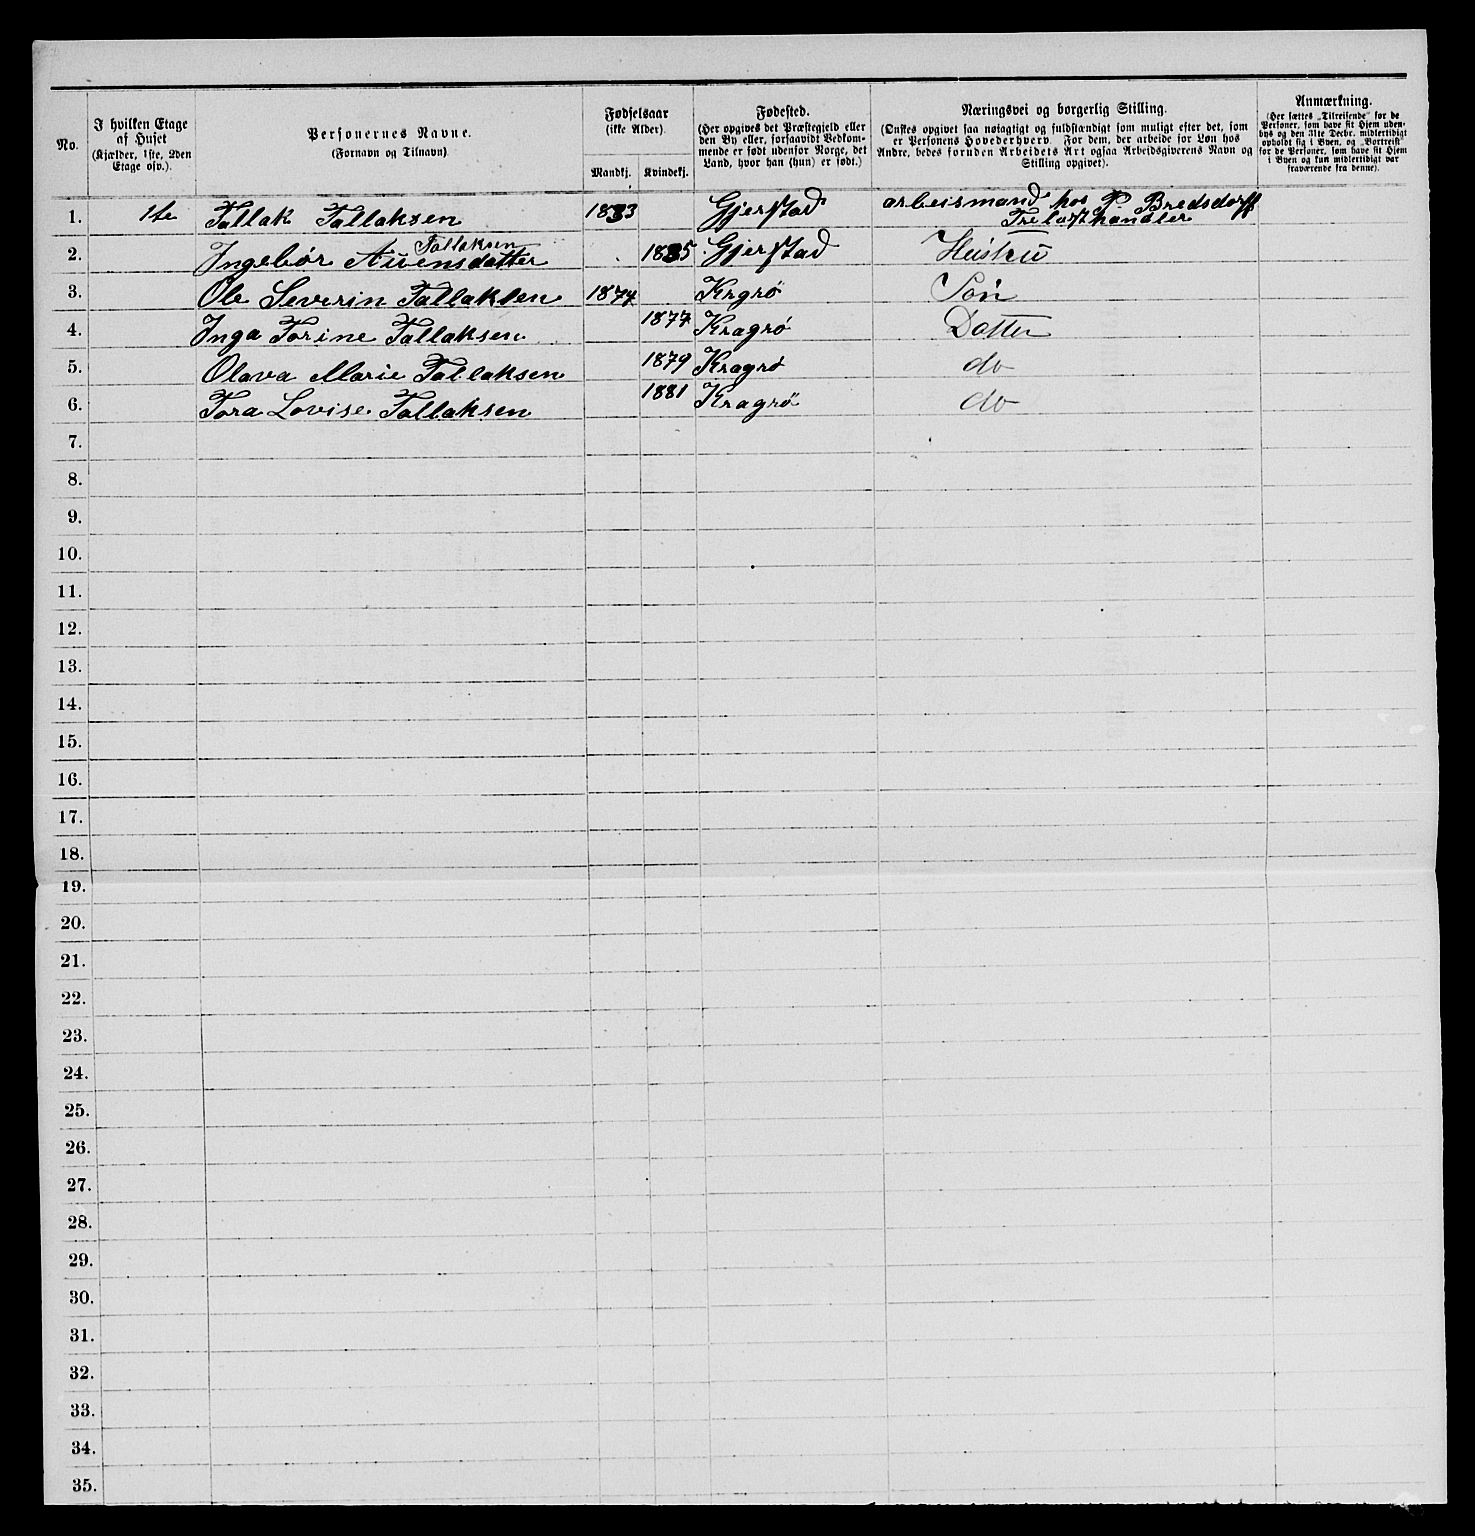 No.
I hvilken Etage
af Huset
(Kjælder, 1ste, 2den
Etage osv.).
Personernes Navne.
(Fornavn og Tilnavn).
Fødselsaar
(ikke Alder).
Mandkj. Kvindekj.
Fødested.
(Her opgives det Præstegjeld eller
den By eller, forsaavidt Vedkom-
mende er født udenfor Norge, det
Land, hvor han (hun) er født.)
Næringsvei og borgerlig Stilling.
(Ønskes opgivet saa nøiagtigt og fuldstændigt som muligt efter det, som
er Personens Hovederhverv. For dem, der arbeide for Løn hos
Andre, bedes foruden Arbeidets Art ogsaa Arbeidsgiverens Navn og
Stilling opgivet).
Anmærkning.
(Her sættes „Tilreisende“ for de
Personer, som have sit Hjem uden-
bys og den 31te Decbr. midlertidigt
opholdt sig i Byen, og „Bortreist“
for de Personer, som have sit Hjem
i Byen og kun midlertidigt var
fraværende fra denne).
1. 1ste Tallak Tallaksen 1833 Gjerstad arbeismand hos P. Bredsdorff
Trelasthandler
Tallaksen
2. Ingebör Auensdatter 1835 Gjerstad Hüstrü
3. Ole Severin Tallaksen 1874 Krgrö Sön
4. Inga Torine Tallaksen 1877 Kragrö Datter
5. Olava Marie Tallaksen 1879 Kragrö do
6. Tora Lovise Tallaksen 1881 Kragrö do
7.
8.
9.
10.
11.
12.
13.
14.
15.
16.
17.
18.
19.
20.
21.
22.
23.
24.
25.
26.
27.
28.
29.
30.
31.
32.
33.
34.
35.